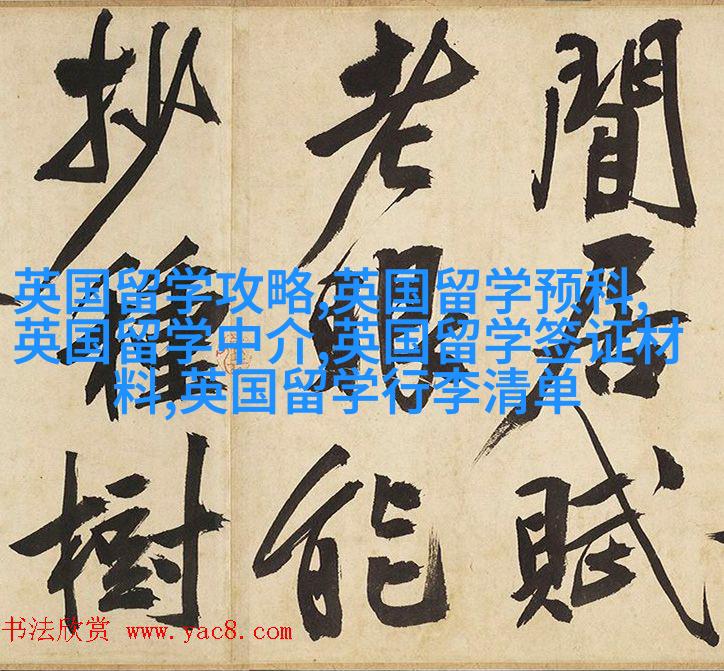 閒居賦
老眼能
抄種樹
英国留学攻略,英国留学预科,
英国留学中介,英国留学签证材
料,英国留学行李清单
书法欣赏 www.yac8.com